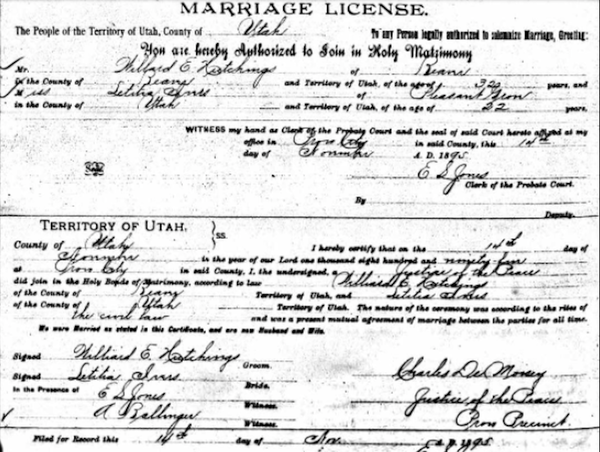 MARRIAGE LICENSE.
The People of the Territory of Utah, County of Utah To any Person legally authorized to solemnize Marriage, Greeting:
You are hereby Authorized to Join in Holy Matrimony
Mr. Willard E. Hutchings of Keane
in the County of Keane and Territory of Utah, of the age of 32 years, and
Miss Letitia Ivers of Pleasant Grove
in the County of Utah and Territory of Utah, of the age of 22 years.
WITNESS my hand as Clerk of the Probate Court and the seal of said Court hereto affixed at my
office in Provo City in said County, this 14th
day of November A. D. 1895.
E S Jones
Clerk of the Probate Court.
By
Deputy.
TERRITORY OF UTAH,
County of Utah ss. I hereby certify that on the 14th day of
November in the year of our Lord one thousand eight hundred and ninety five
at Provo City in said County, I, the undersigned, a Justice of the Peace
did join in the Holy Bonds of Matrimony, according to law Williard E. Hutchings
of the County of Territory of Utah, and Letitia Ivers
of the County of Utah Territory of Utah. The nature of the ceremony was according to the rites of
the civil law and was a present mutual agreement of marriage between the parties for all time.
We were Married as stated in this Certificate, and are now Husband and Wife.
Signed Williard E. Hutchings Groom.
Signed Letitia Ivers Bride. Charles De
In the Presence of E S Jones Witness. Justice of the Peace
A Ballinger Witness. Provo Precinct.
Filed for Record this 14th day of Nov. A. D. 1895